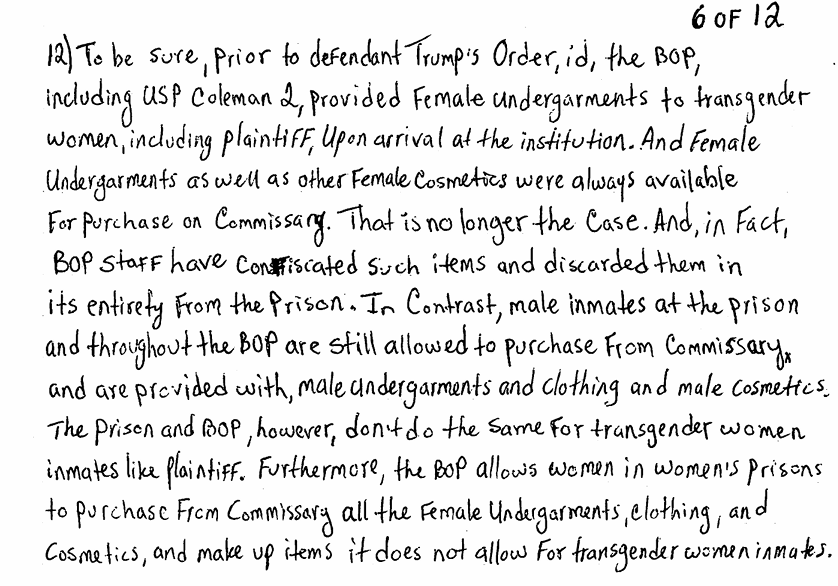 6 OF 12
12) To be sure, prior to defendant Trump's Order, id, the BOP,
including USP Coleman 2, provided Female undergarments to transgender
women, including plaintiff, Upon arrival at the institution. And Female
Undergarments as well as other Female Cosmetics were always available
For purchase on Commissary. That is no longer the Case. And, in Fact,
BOP staff have confiscated such items and discarded them in
its entirety From the Prison. In Contrast, male inmates at the prison
and throughout the BOP are still allowed to purchase From Commissary,
and are provided with, male undergarments and clothing and male cosmetics.
The Prison and BOP, however, don't do the same For transgender women
inmates like plaintiff. Furthermore, the BOP allows women in women's prisons
to purchase From Commissary all the Female Undergarments, clothing, and
Cosmetics, and make up items it does not allow For transgender women inmates.